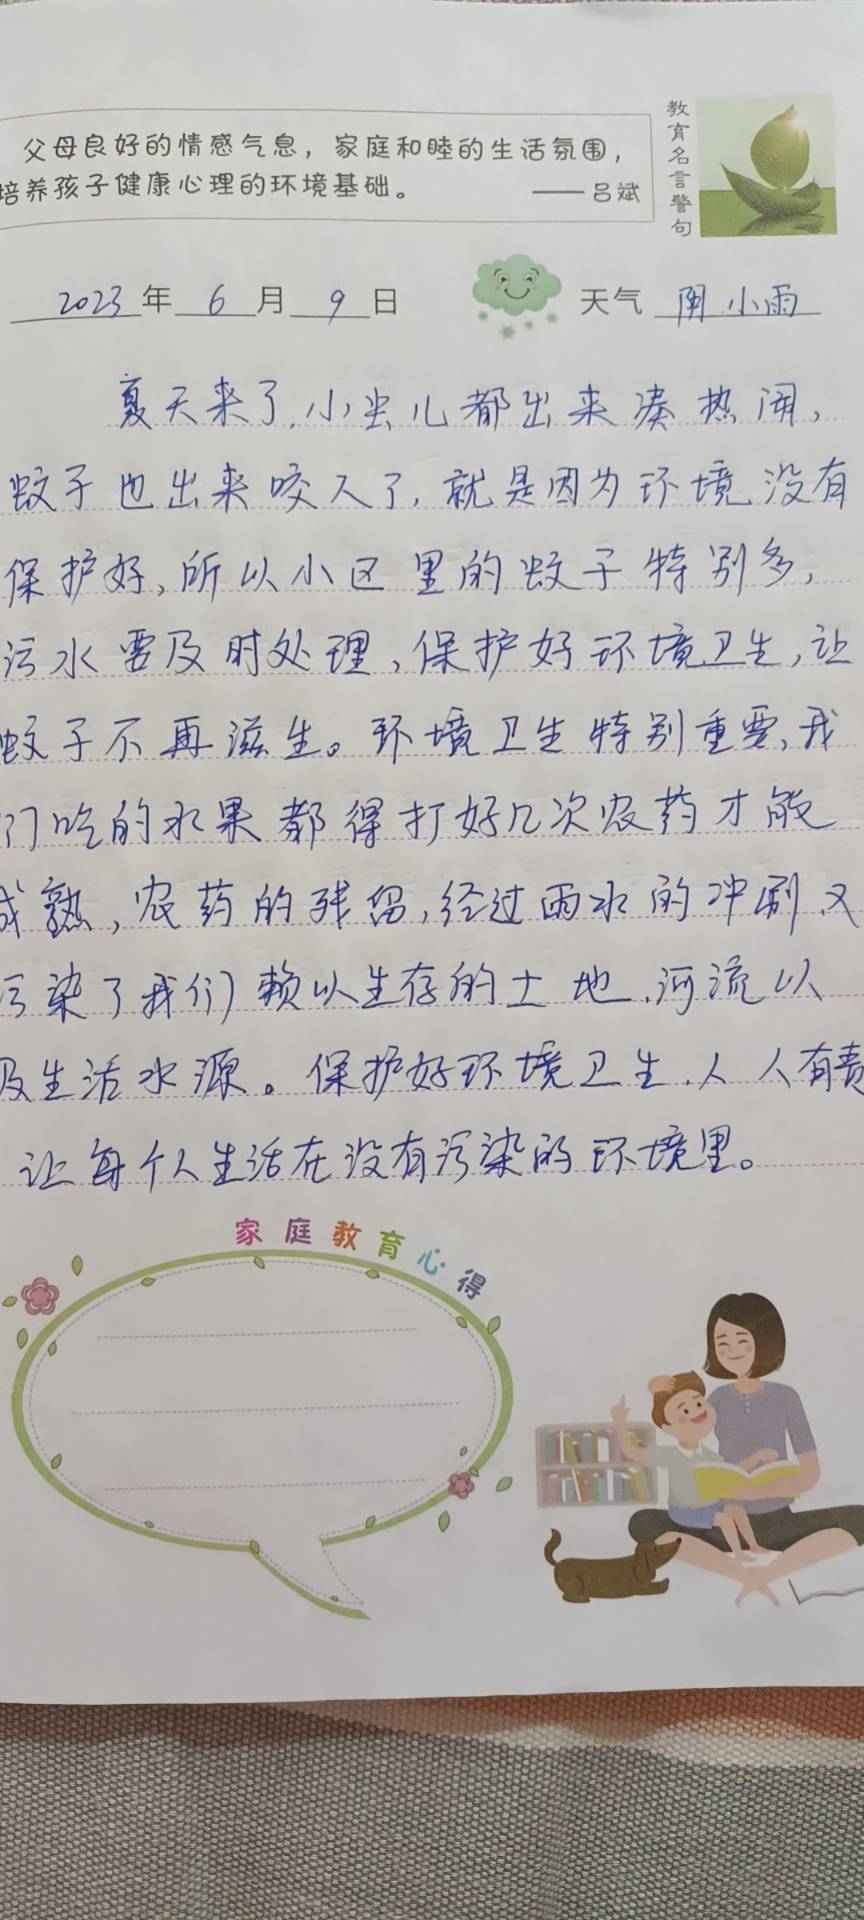 父母良好的情感气息，家庭和睦的生活氛围，
培养孩子健康心理的环境基础。 —— 吕斌
教育名言警句
2023年6月9日 天气 阴小雨
夏天来了，小虫儿都出来凑热闹，
蚊子也出来咬人了，就是因为环境没有
保护好，所以小区里的蚊子特别多，
污水要及时处理，保护好环境卫生，让
蚊子不再滋生。环境卫生特别重要，我
们吃的水果都得打好几次农药才能
成熟，农药的残留，经过雨水的冲刷又
污染了我们赖以生存的土地，河流以
及生活水源。保护好环境卫生，人人有责
让每个人生活在没有污染的环境里。
家庭教育心得